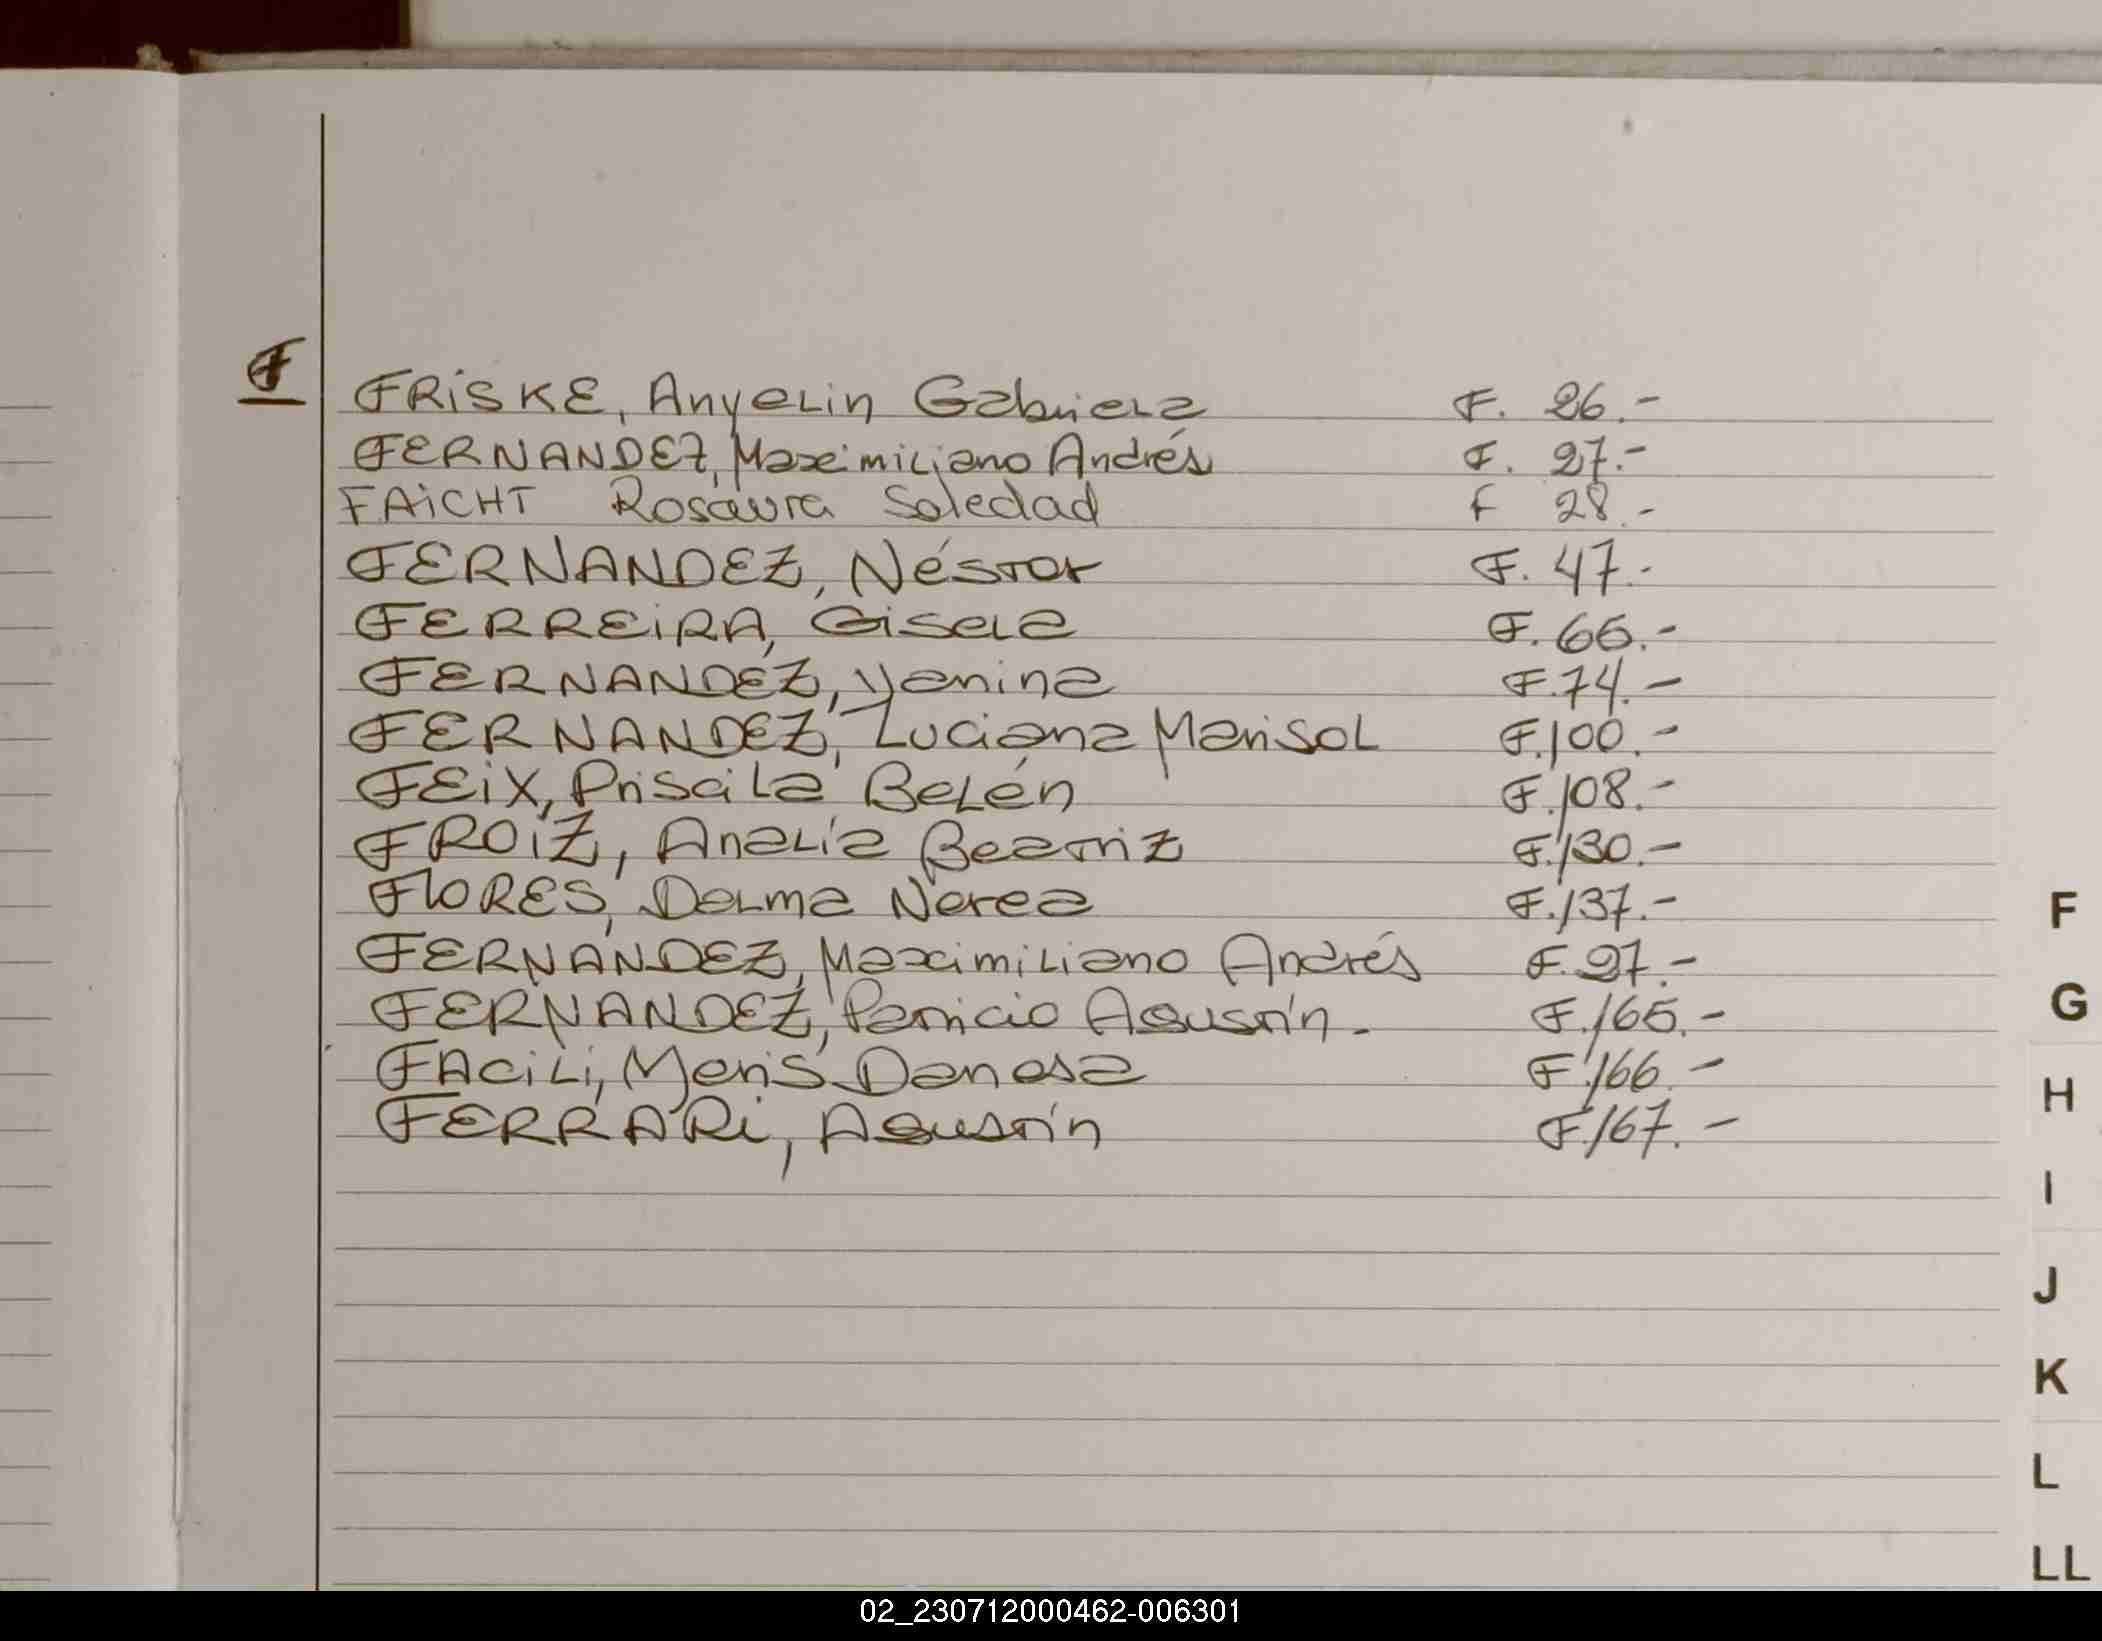 F
FRiSKE, Anyelin Gabriela F. 26.-
FERNANDEZ, Maximiliano Andrés F. 27.-
FAiCHT Rosaura Soledad F 28.-
FERNANDEZ, Néstor F. 47.-
FERREiRA, Gisela F. 66.-
FERNANDEZ, Yanina F. 74.-
FERNANDEZ, Luciana Marisol F. 100.-
FEiX, Priscila Belén F. 108.-
FROiZ, Analía Beatriz F. 130.-
FlORES, Delma Nerea F. 137.-
FERNANDEZ, Maximiliano Andrés F. 27.-
FERNANDEZ, Patricio Agustín.- F. 165.-
FACiLi, Maris Danesa F. 166.-
FERRARi, Agustín F. 167.-
F
G
H
I
J
K
L
LL
02_230712000462-006301